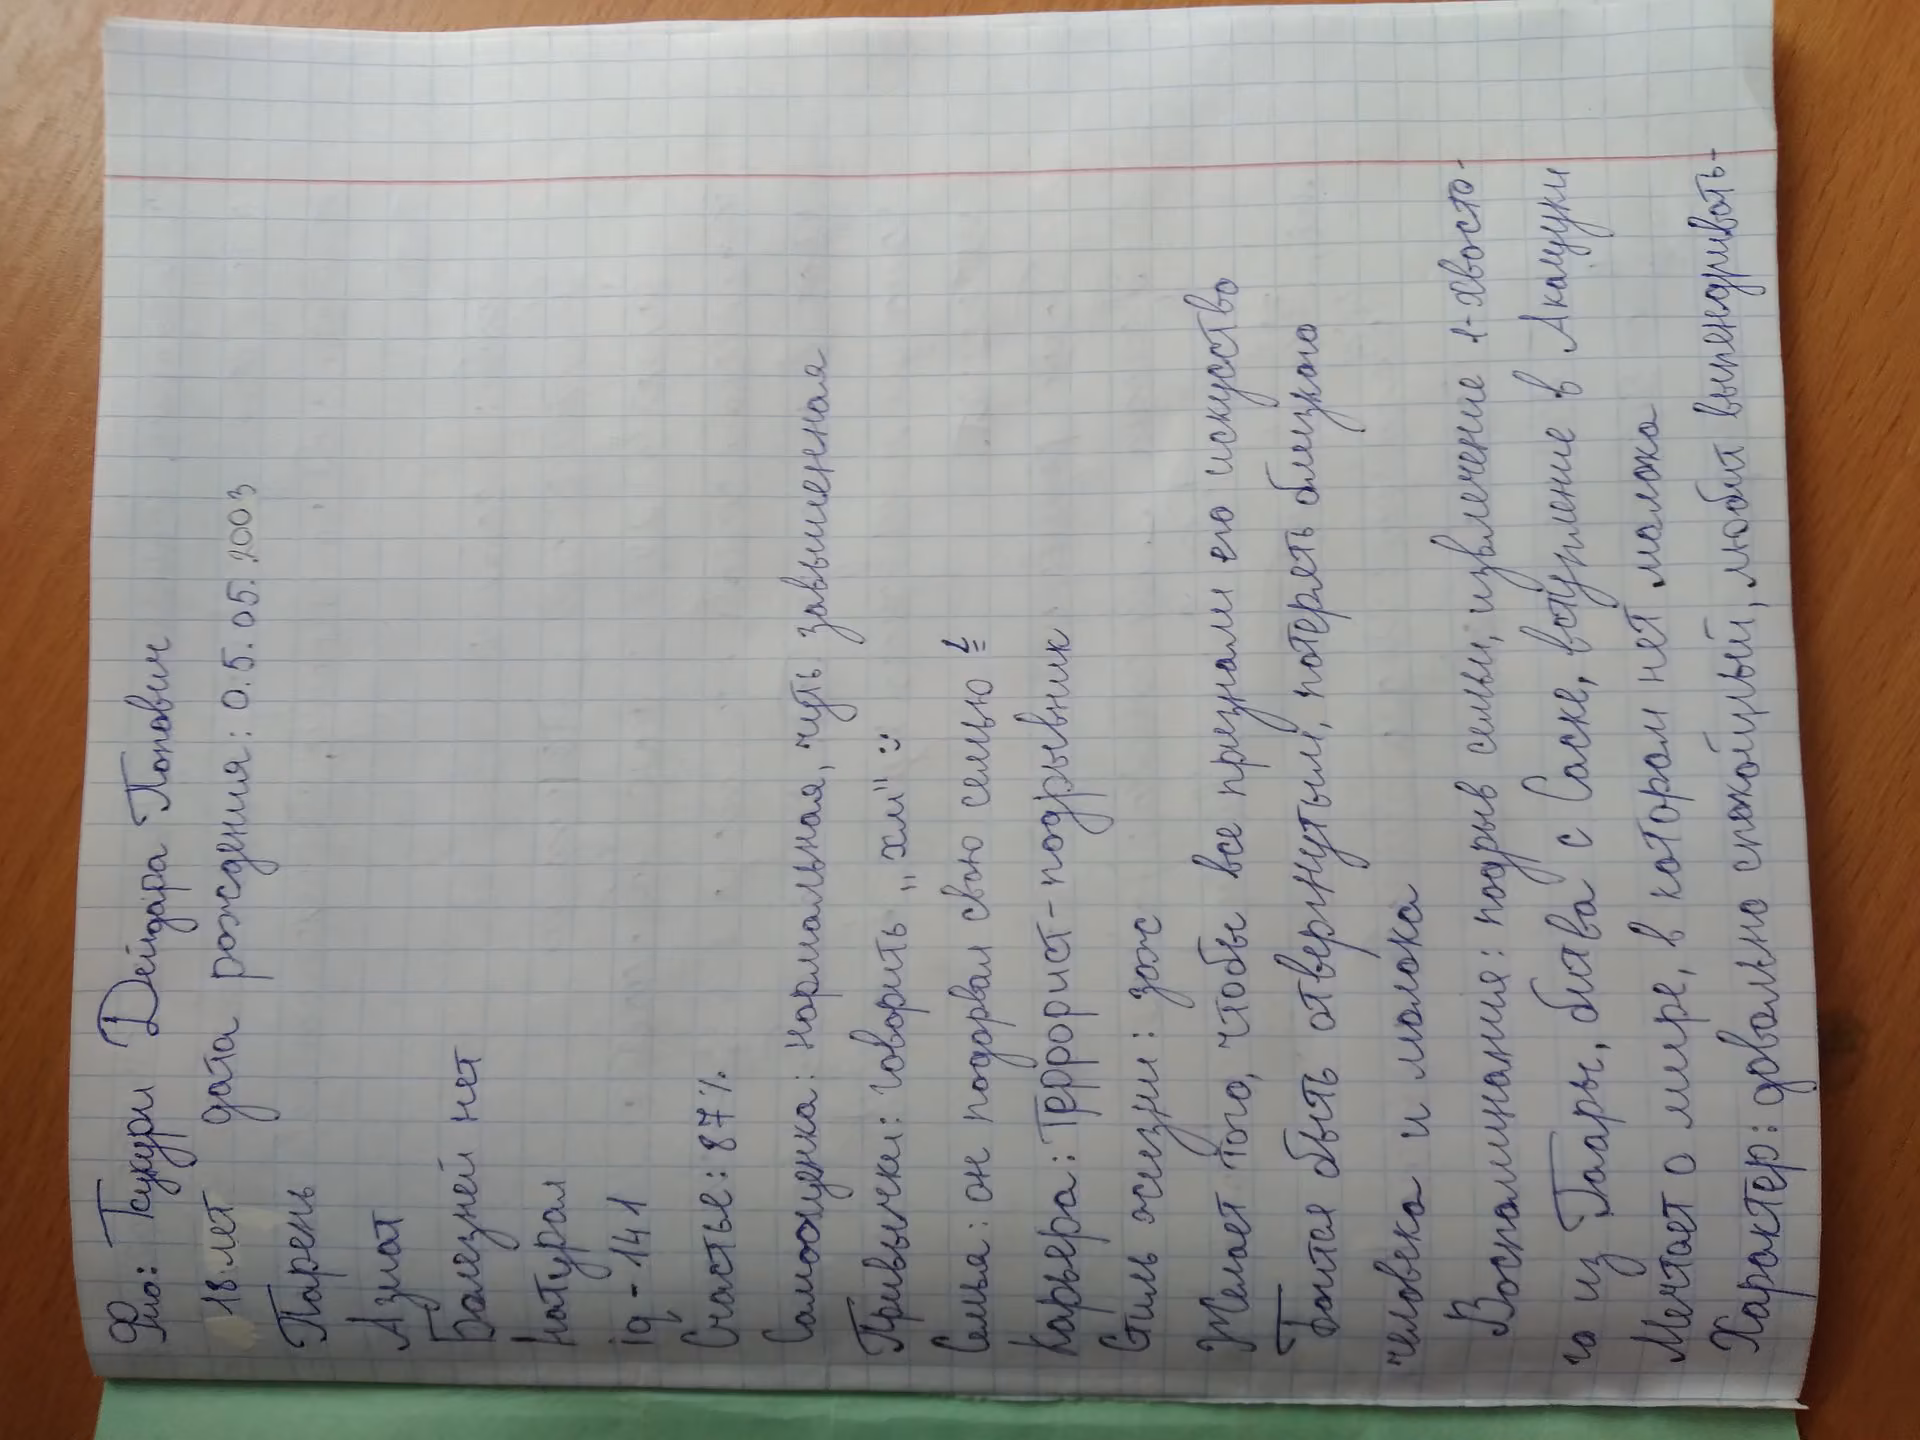 Фио: Тсукури Дейдара Попович
18 лет дата рождения: 0.5.05.2003
Парень
Азиат
Болезней нет
Натурал
iq - 141
Счастье: 87%
Самооценка: нормальная, чуть завышенная
Привычки: говорить „хм" :
Семья: он подорвал свою семью
Карьера: Террорист-подрывник
Стиль жизни: зож
Желает того, чтобы все признали его искуство
Боится быть отвергнутым, потерять близкого
человека и молока
Воспоминания: подрыв семьи, извлечение 1-хвосто-
го из Гаары, битва с Саске, вступление в Акацуки
Мечтает о мире, в котором нет молока
Характер: довольно спокойный, любит выпендривать-